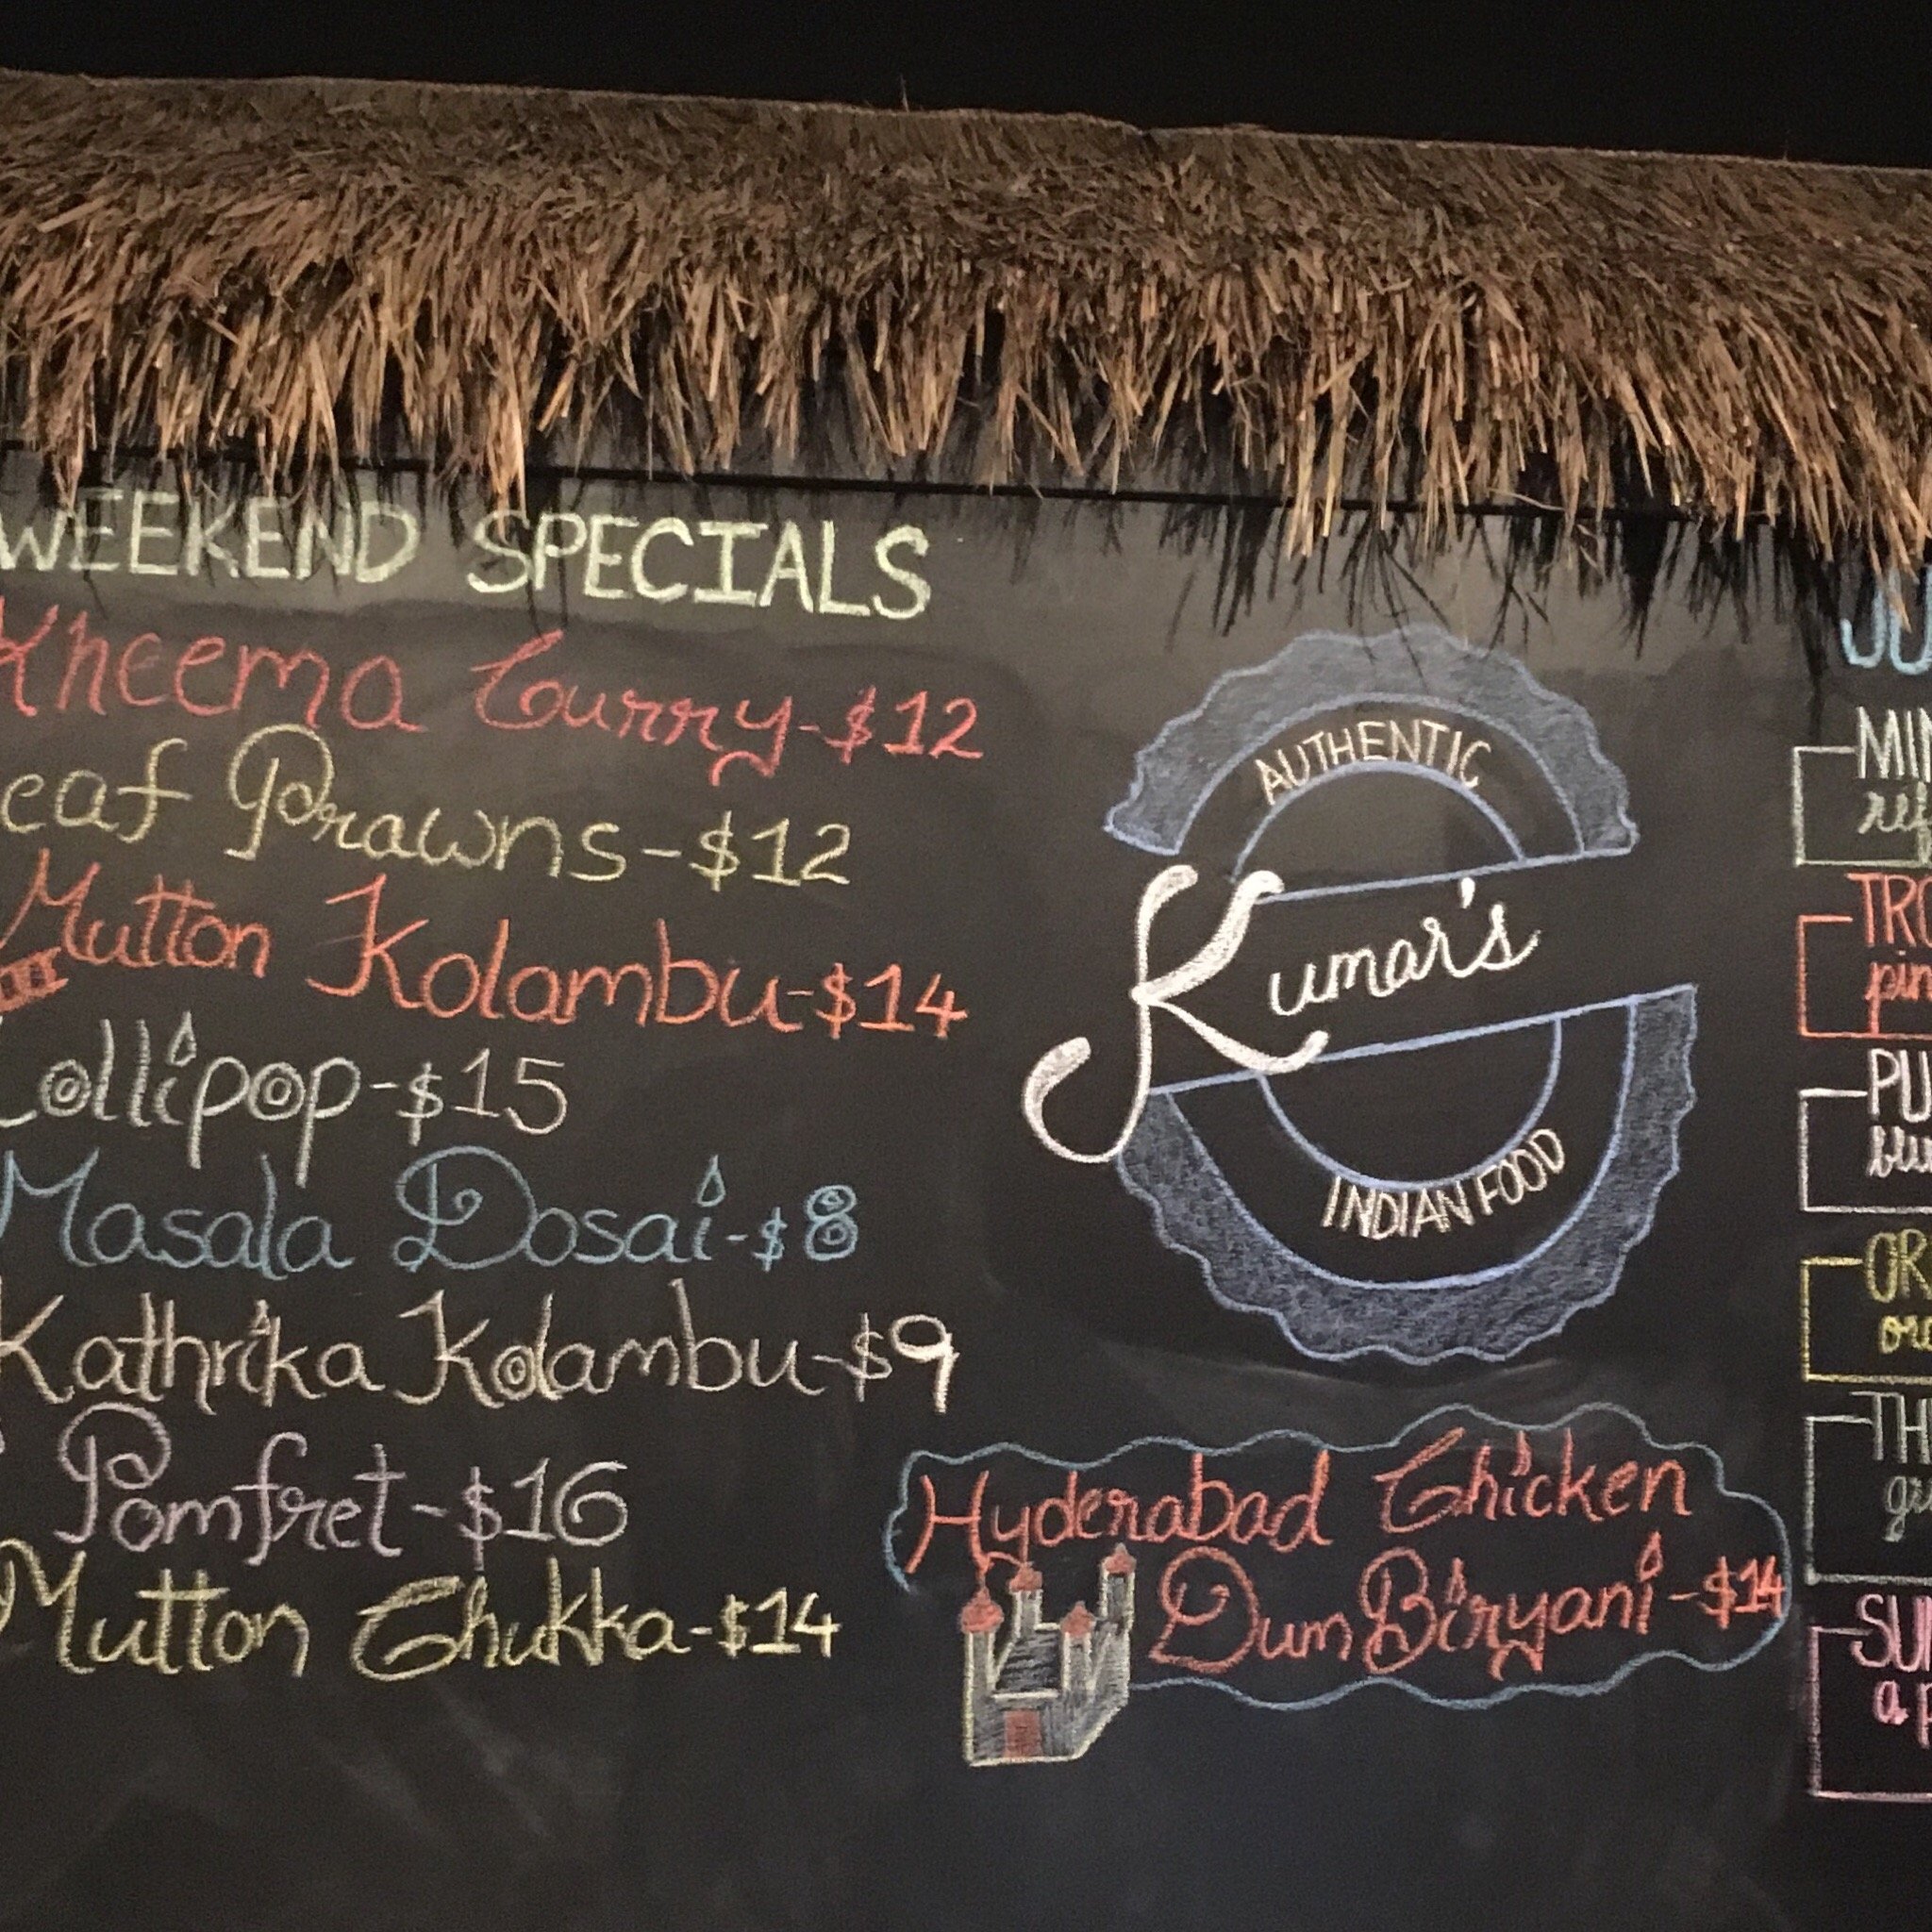 WEEKEND SPECIALS
Kheema Curry-$12
eaf Prawns-$12
Mutton Kolambu-$14
Lollipop-$15
Masala Dosai-$8
Kathrika Kolambu-$9
Pomfret-$16
Mutton Chukka-$14
AUTHENTIC
Kumar's
INDIAN FOOD
Hyderabad Chicken
Dum Biryani-$14
MIN
ref
TRO
pin
PU
OR
TH
SUN
a p